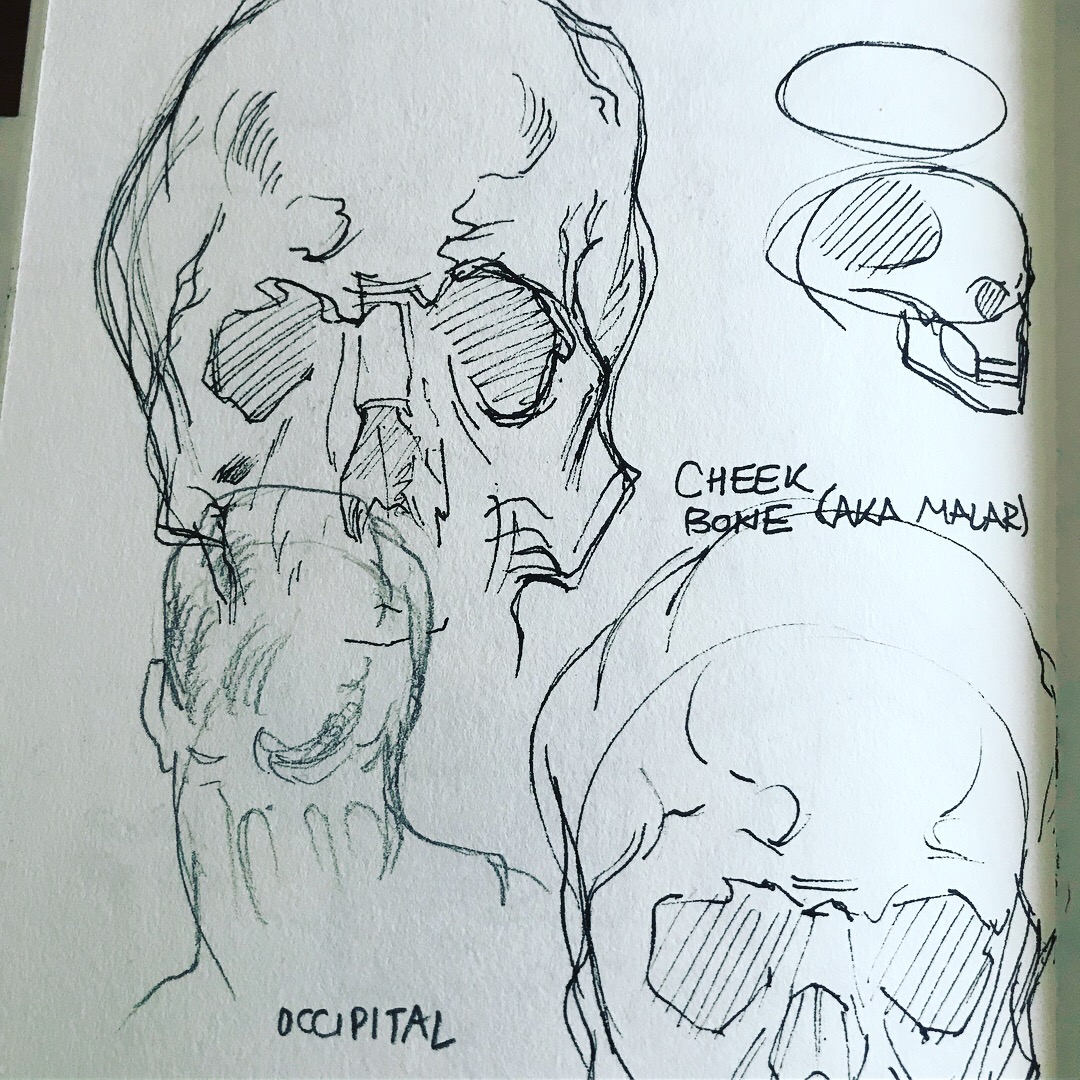 CHEEK
BONE (AKA MALAR)
OCCIPITAL